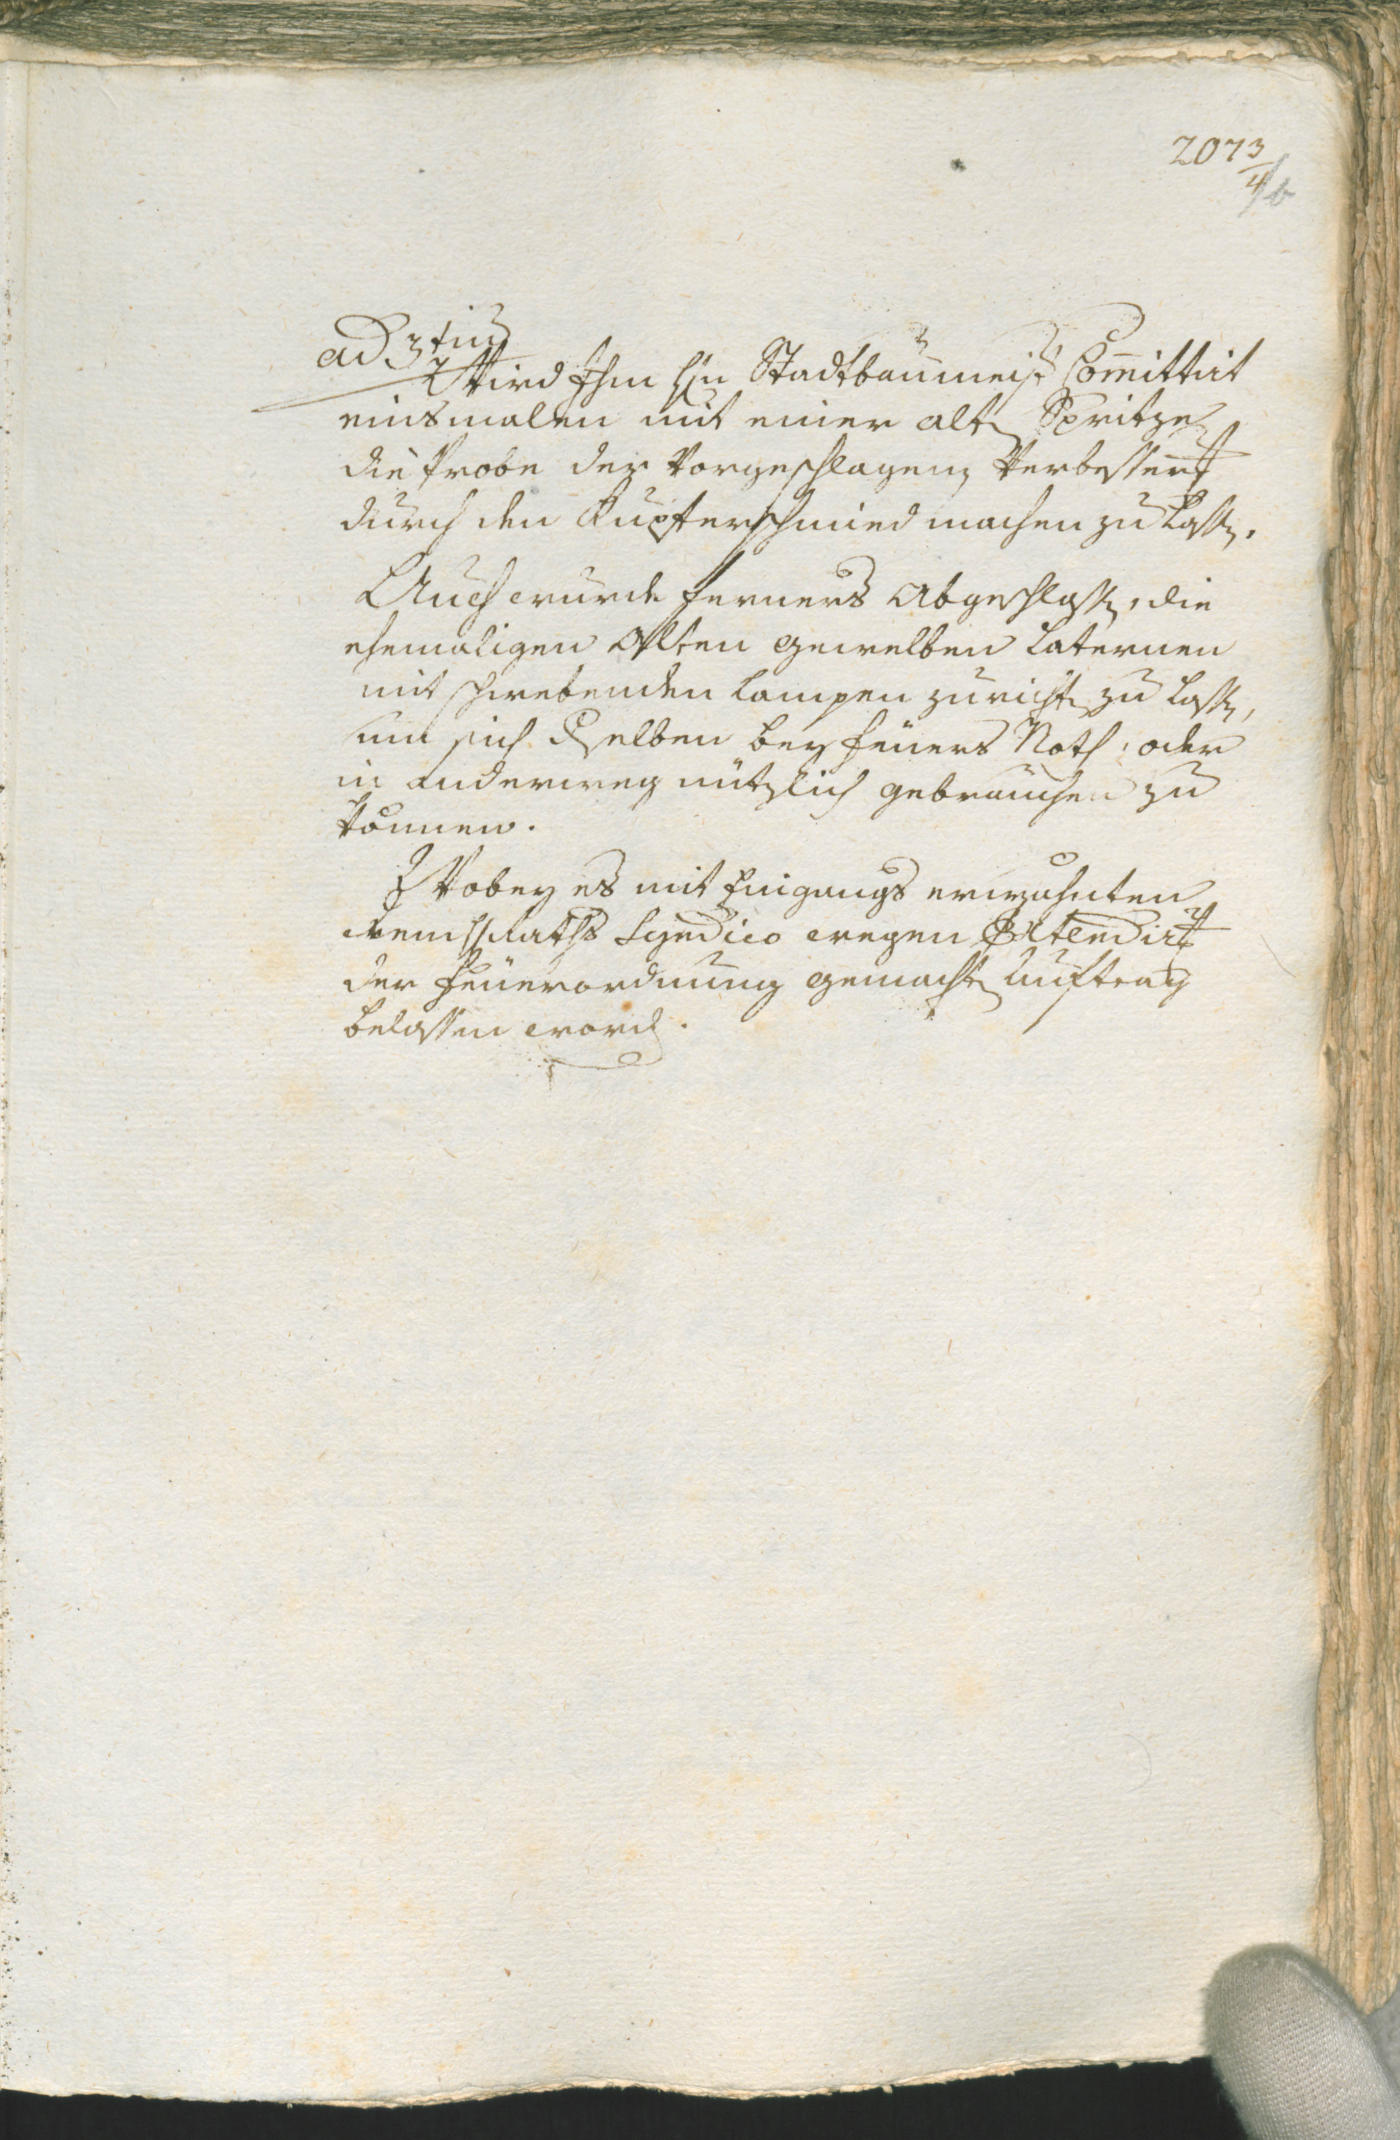 2073/4
b
ad 3tium
Wird Ihm Hrn Stadtbaumeist. Committirt
einsmalen mit einer alten Spritzen
die Probe der vorgeschlagenen Verbesserung
durch den Kupferschmied machen zu lassen.
Auch wurde ferners abgeschlossen, die
ehemaligen alten gewelben Laternen
mit schwebenden Lampen zurichten zu lassen,
um sich derselben bey Feüers Noth, oder
in anderweg nützlich gebrauchen zu
können.
Wobey es mit Eingangs erwehnten
Raths Syndico wegen
der Feüerordnung gemachten Auftrag
belassen worden.